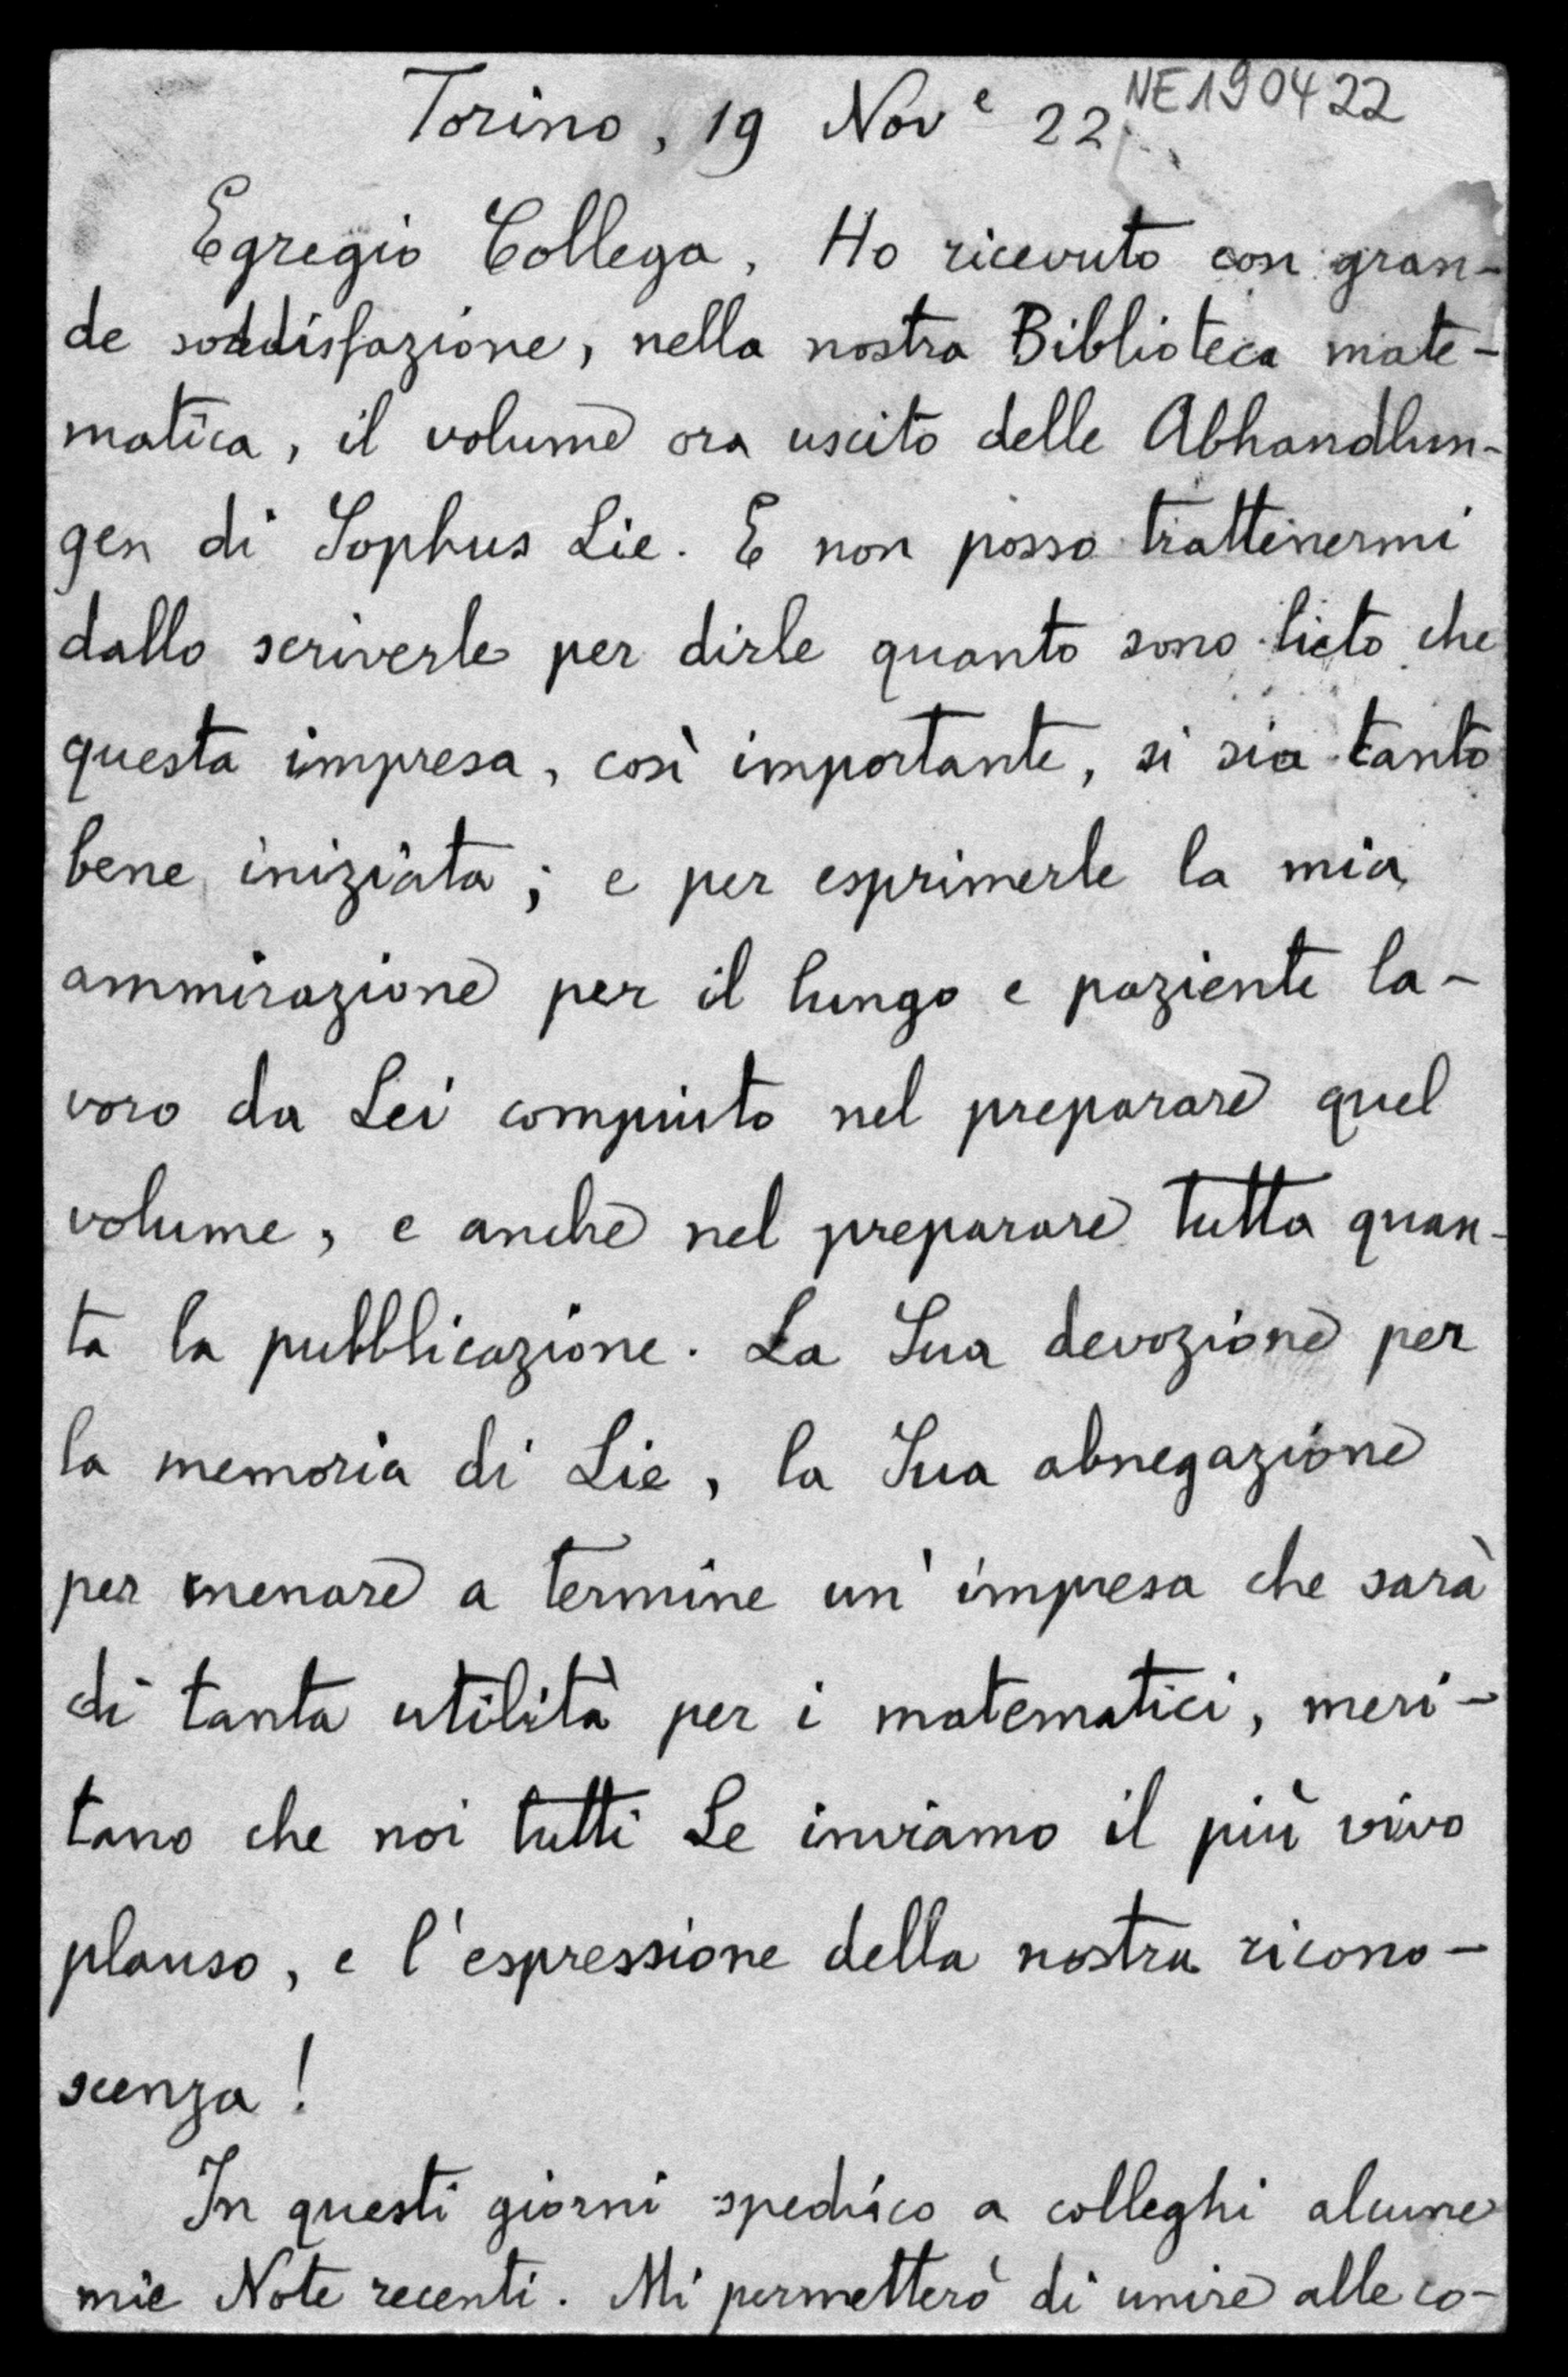 Torino, 19 Nov.e 22 NE190422
Egregio Collega, Ho ricevuto con gran-
de soddisfazione, nella nostra Biblioteca mate-
matica, il volume ora uscito delle Abhandlun-
gen di Sophus Lie. E non posso trattenermi
dallo scriverle per dirle quanto sono lieto che
questa impresa, così importante, si sia tanto
bene iniziata; e per esprimerle la mia
ammirazione per il lungo e paziente la-
voro da Lei compiuto nel preparare quel
volume, e anche nel preparare tutta quan-
ta la pubblicazione. La Sua devozione per
la memoria di Lie, la Sua abnegazione
per menare a termine un'impresa che sarà
di tanta utilità per i matematici, meri-
tano che noi tutti Le inviamo il più vivo
plauso, e l'espressione della nostra ricono-
scenza!
In questi giorni spedisco a colleghi alcune
mie Note recenti. Mi permetterò di unire alle co-